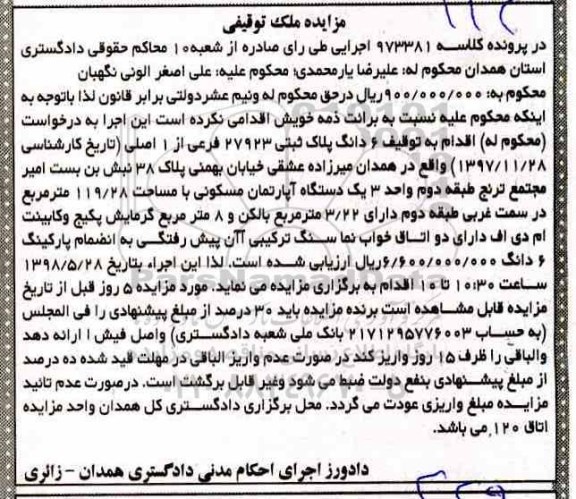 مزایده ملک توقیفی
در پرونده کلاسه ۹۷۳۳۸۱ اجرایی طی رای صادره از شعبه۱۰ محاکم حقوقی دادگستری
استان همدان محکوم له: علیرضا یارمحمدی؛ محکوم علیه: علی اصغر الونی نگهبان
محکوم به: ۹۰۰/۰۰۰/۰۰۰ریال درحق محکوم له ونیم عشردولتی برابر قانون لذا باتوجه به
اینکه محکوم علیه نسبت به برائت ذمه خویش اقدامی نکرده است این اجرا به درخواست
(محکوم له) اقدام به توقیف ۶ دانگ پلاک ثبتی ۲۷۹۲۳ فرعی از ۱ اصلی (تاریخ کارشناسی
۱۳۹۷/۱۱/۲۸) واقع در همدان میرزاده عشقی خیابان بهمنی پلاک ۳۸ نبش بن بست امیر
مجتمع ترنج طبقه دوم واحد ۳ یک دستگاه آپارتمان مسکونی با مساحت ۱۱۹/۲۸ مترمربع
در سمت غربی طبقه دوم دارای ۳/۲۲ مترمربع بالکن و ۸ متر مربع گرمایش پکیج وکابینت
ام دی اف دارای دو اتاق خواب نما سنگ ترکیبی آآن پیش رفتگی به انضمام پارکینگ
۶ دانگ ۶/۶۰۰/۰۰۰/۰۰۰ریال ارزیابی شده است. لذا این اجراء بتاریخ ۱۳۹۸/۵/۲۸
ساعت ۱۰:۳۰ تا ۱۰ اقدام به برگزاری مزایده می نماید. مورد مزایده ۵ روز قبل از تاریخ
مزایده قابل مشاهده است برنده مزایده باید ۳۰ درصد از مبلغ پیشنهادی را فی المجلس
(به حساب ۲۱۷۱۲۹۵۷۷۶۰۰۳ بانک ملی شعبه دادگستری) واصل فیش ا ارائه دهد
والباقی را ظرف ۱۵ روز واریز کند در صورت عدم واریز الباقی در مهلت قید شده ده درصد
از مبلغ پیشنهادی بنفع دولت ضبط می شود وغیر قابل برگشت است. درصورت عدم تائید
مزایده مبلغ واریزی عودت می گردد. محل برگزاری دادگستری کل همدان واحد مزایده
اتاق ۱۲۰ می باشد.
دادورز اجرای احکام مدنی دادگستری همدان -زائری